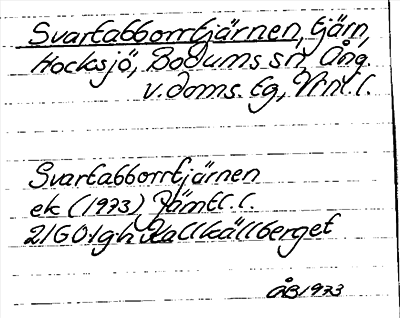 Svartabborrtjärnen, tjärn,
Hocksjö, Bodums sn, Ång.
v. doms. tg, Vnl. l.
Svartabborrtjärnen
ek (1973) Jämtl. l.
21G 0 1 g h Kallkällberget
ÅB 1973